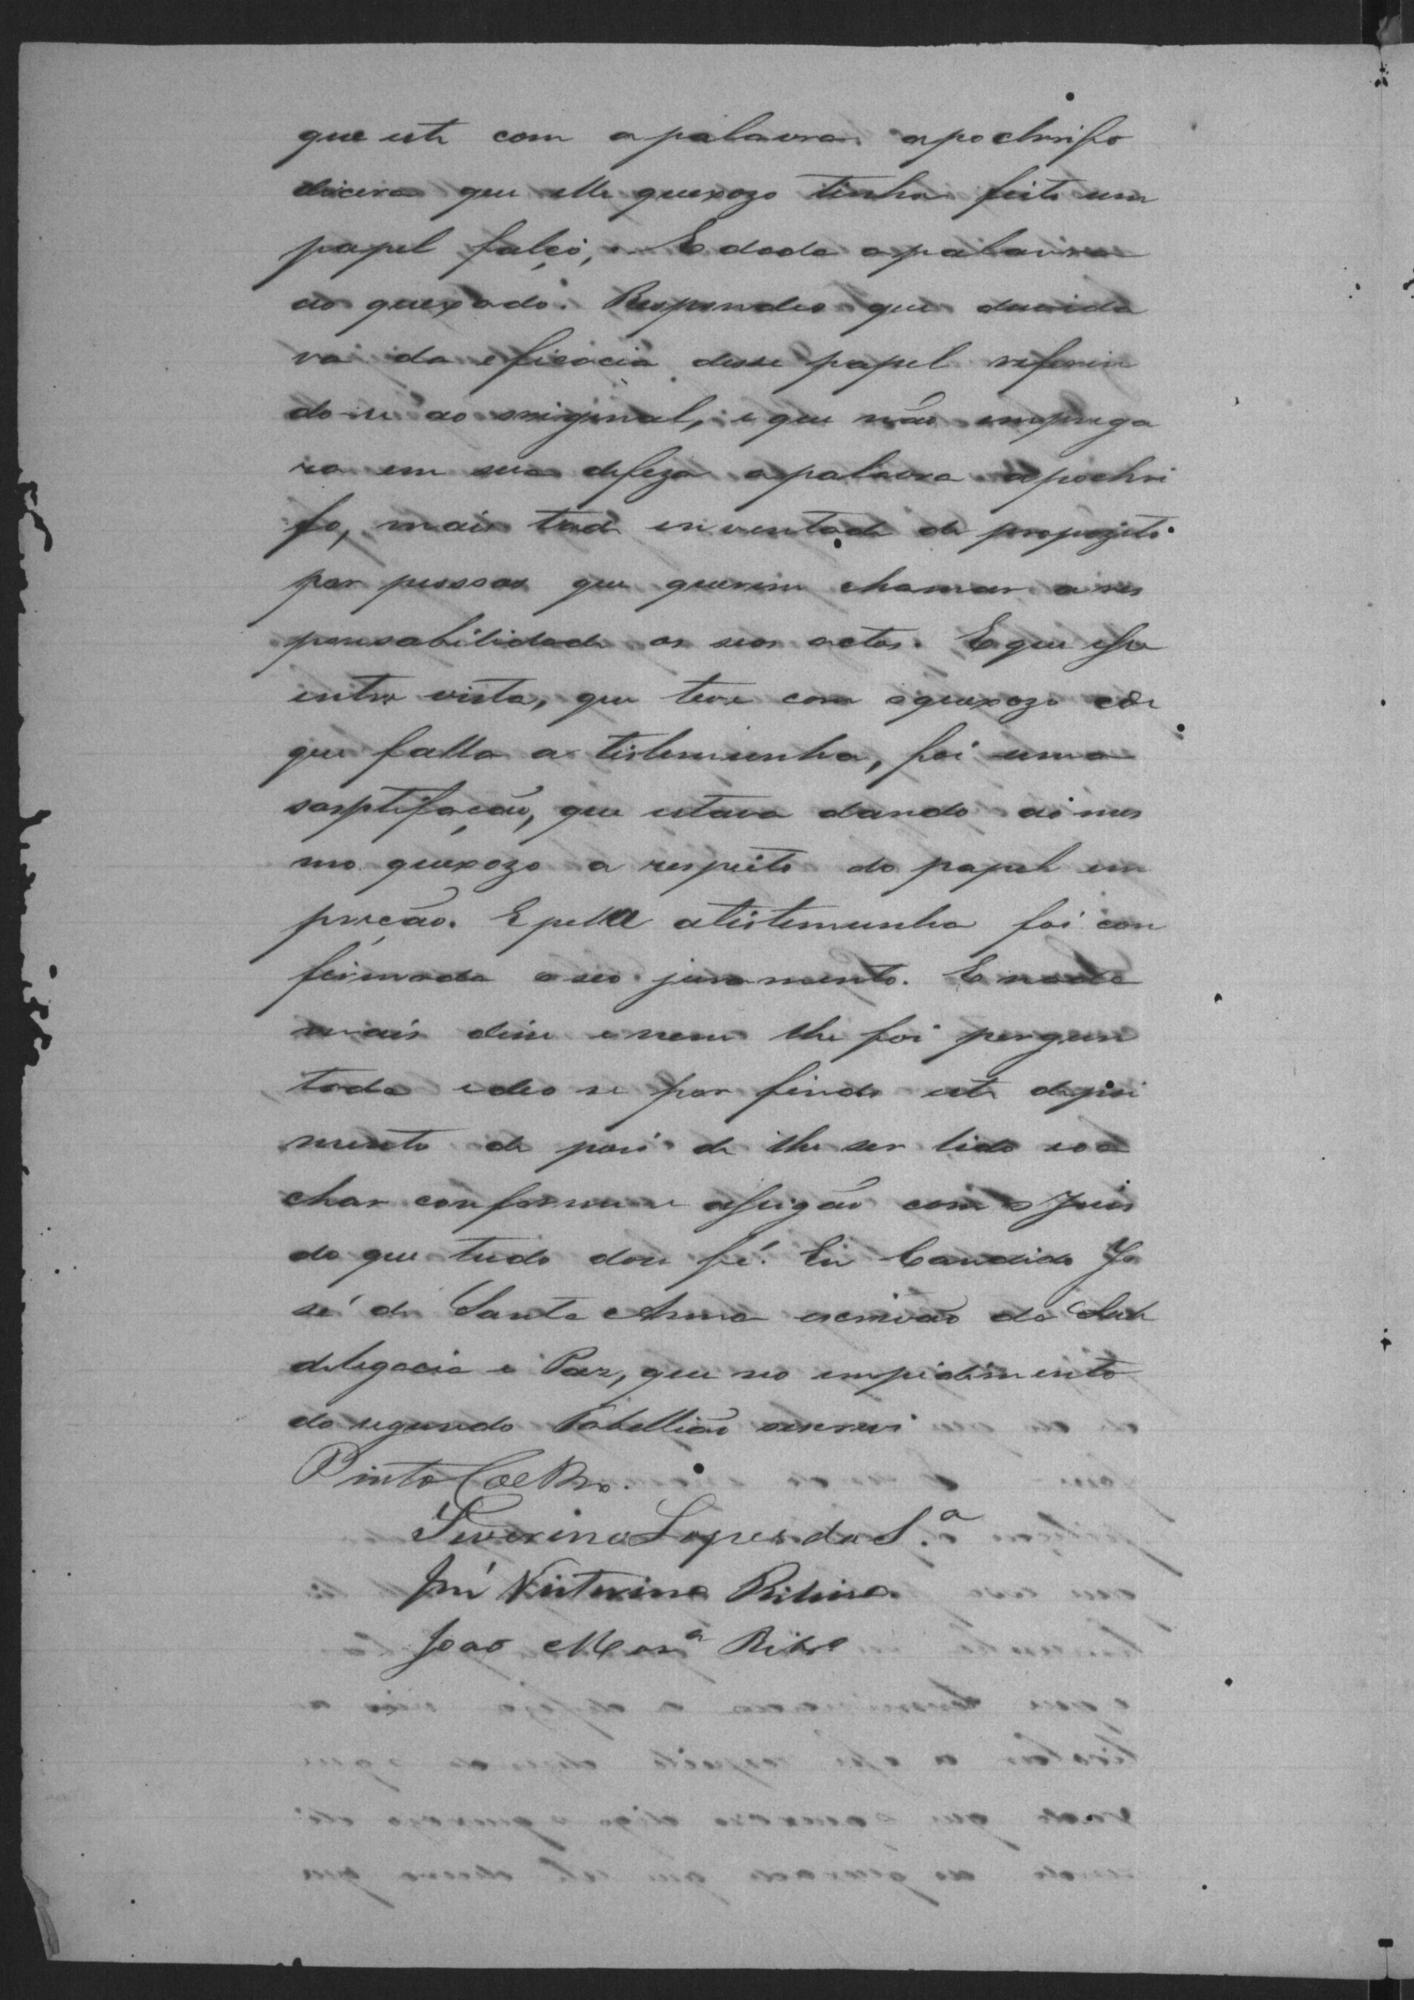 que este com apalavra apochrifo
dicera que elle quexozo tinha feito um
papel falço, E dada apalavra
ao quexado. Respondeo que duvida
va da eficacia desse papel referin
do-se ao original, e que não emprega
ra em sua defeza apalavra apochri
fo, mais tudo inventado de propozito
por pessoas que querem chamar a res
ponsabilidade os seos actos. E que essa
entre vista, que teve com oquexozo de
que falla a testemunha, foi uma
que estava dando ao mes
mo quexozo a respeito do papel em
E pella atestemunha foi con
firmado oseo juramento. E nada
mais disse e nem lhe foi pergun
tado e deo se por findo este depoi
mento de pois de lhe ser lido e o a
char conforme e com o Juis
do que tudo dou fé. Eu Candido Jo
sé de Santa Anna escrivão da Sub
delegacia e Paz, que no impedimento
do segundo Tabellião escrevi
Pinto Coelho.
Severino Lopes da S.ª
José Ribeiro
João Mar.ª Ribr.º